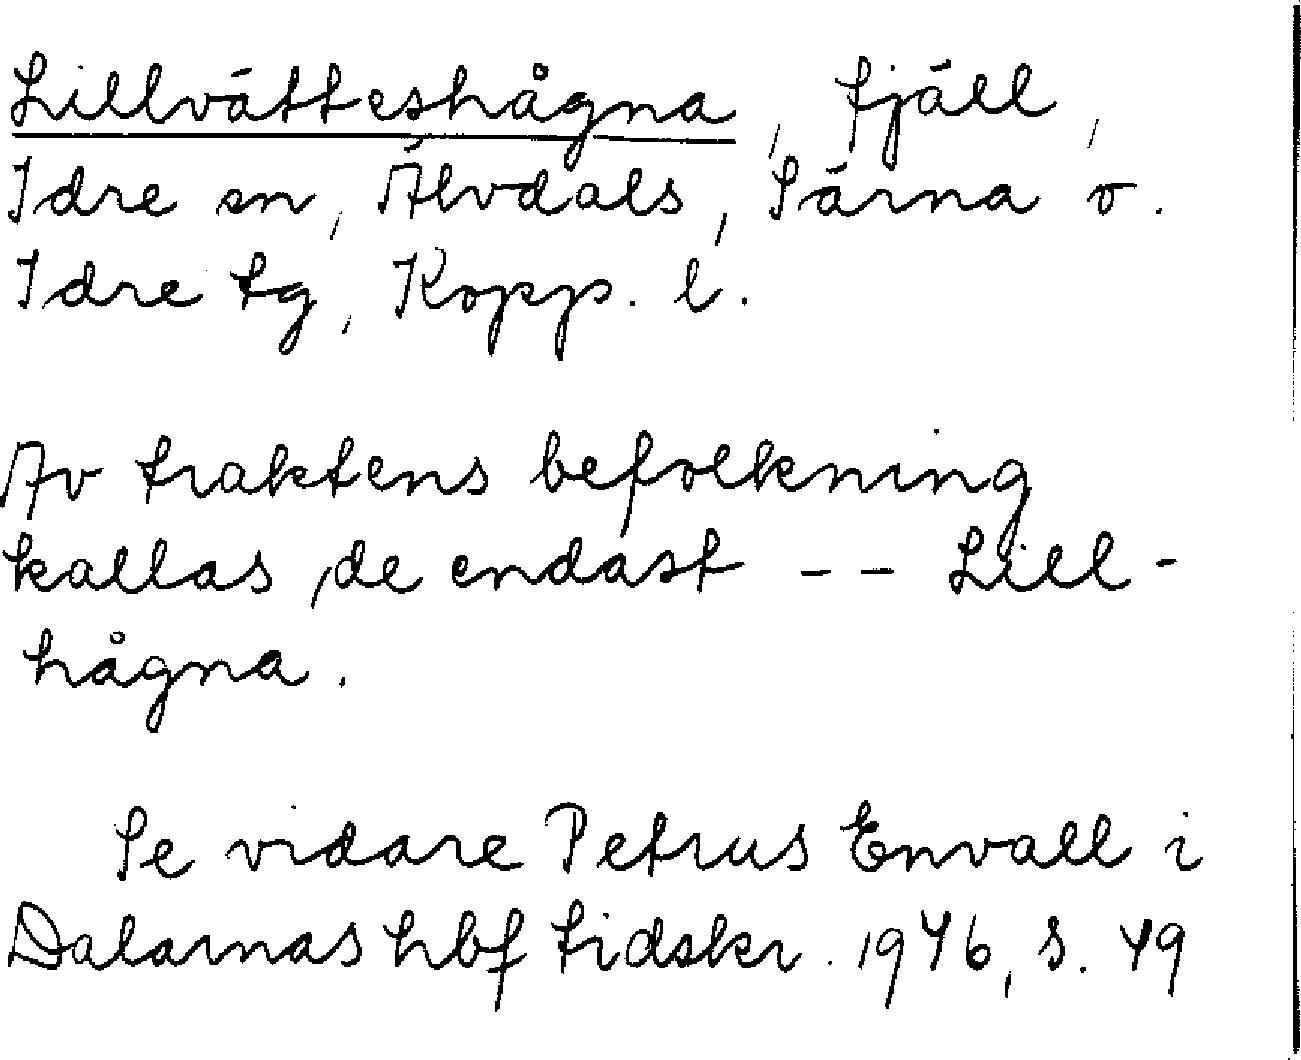 Lillvätteshågna, fjäll,
Idre sn, Älvdals, Särna o.
Idre tg, Kopp. l.
Av traktens befolkning
kallas, de endast -- Lill-
hågna.
Se vidare Petrus Envall i
Dalarnas hbf tidskr. 1946, s. 49